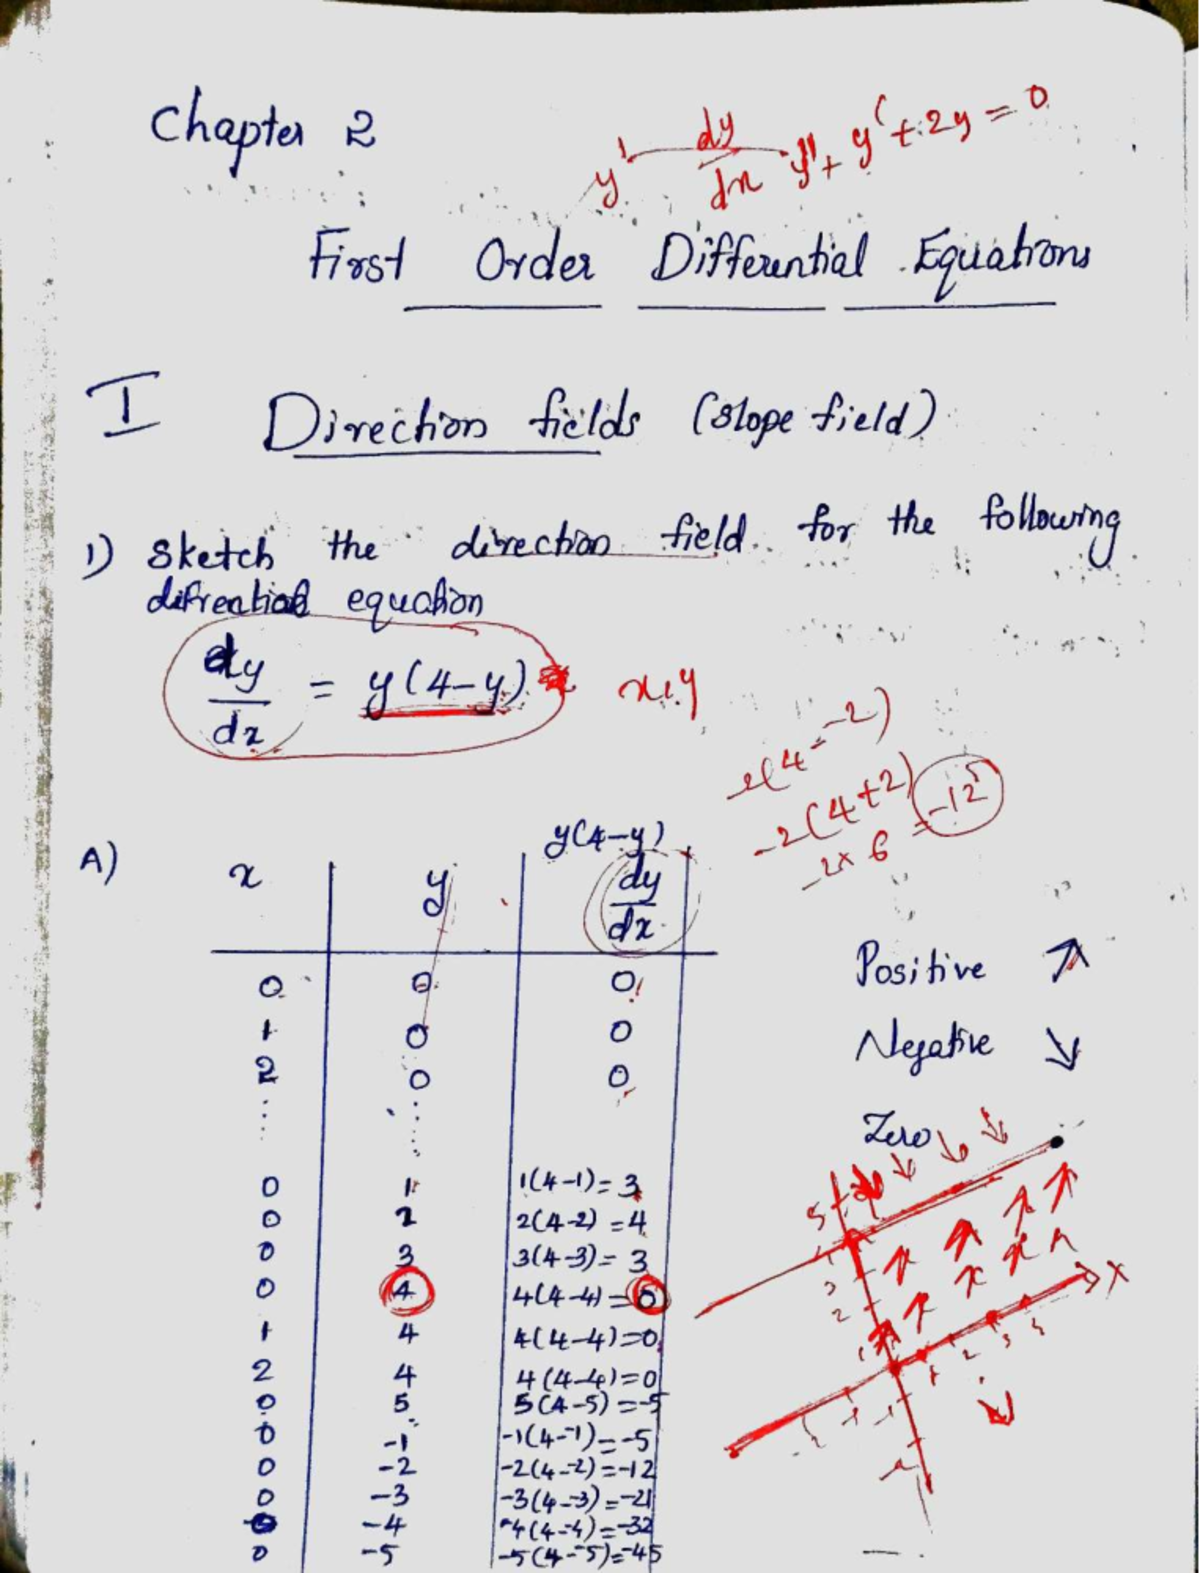 Chapter 2
y' dy/dx y'' + y' + 2y = 0
First Order Differential Equations
I Direction fields (slope field)
1) Sketch the direction field for the following
difrential equation
dy/dx = y(4-y) x,y
(4--2)
-2(4+2)
-2x6 = -12
y(4-y)
A) x y dy/dx
0 0 0
1 0 0
2 0 0
Positive ↗
Negative ↘
Zero
0 1 1(4-1)=3
0 2 2(4-2)=4
0 3 3(4-3)=3
0 4 4(4-4)=0
1 4 4(4-4)=0
2 4 4(4-4)=0
0 5 5(4-5)=-5
0 -1 -1(4--1)=-5
0 -2 -2(4--2)=-12
0 -3 -3(4--3)=-21
0 -4 -4(4--4)=-32
0 -5 -5(4--5)=-45
X